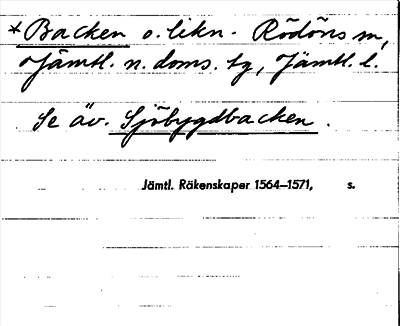 *Backen o. likn. Rödöns sn,
Jämtl. n. doms. tg, Jämtl. l.
Se äv. Sjöbygdbacken.
Jämtl. Räkenskaper 1564–1571, s.